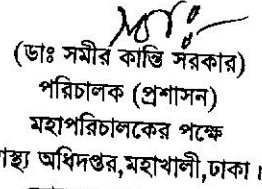 (ডাঃ সমীর কান্তি সরকার)
পরিচালক (প্রশাসন)
মহাপরিচালকের পক্ষে
স্থ্য অধিদপ্তর,মহাখালী,ঢাকা।